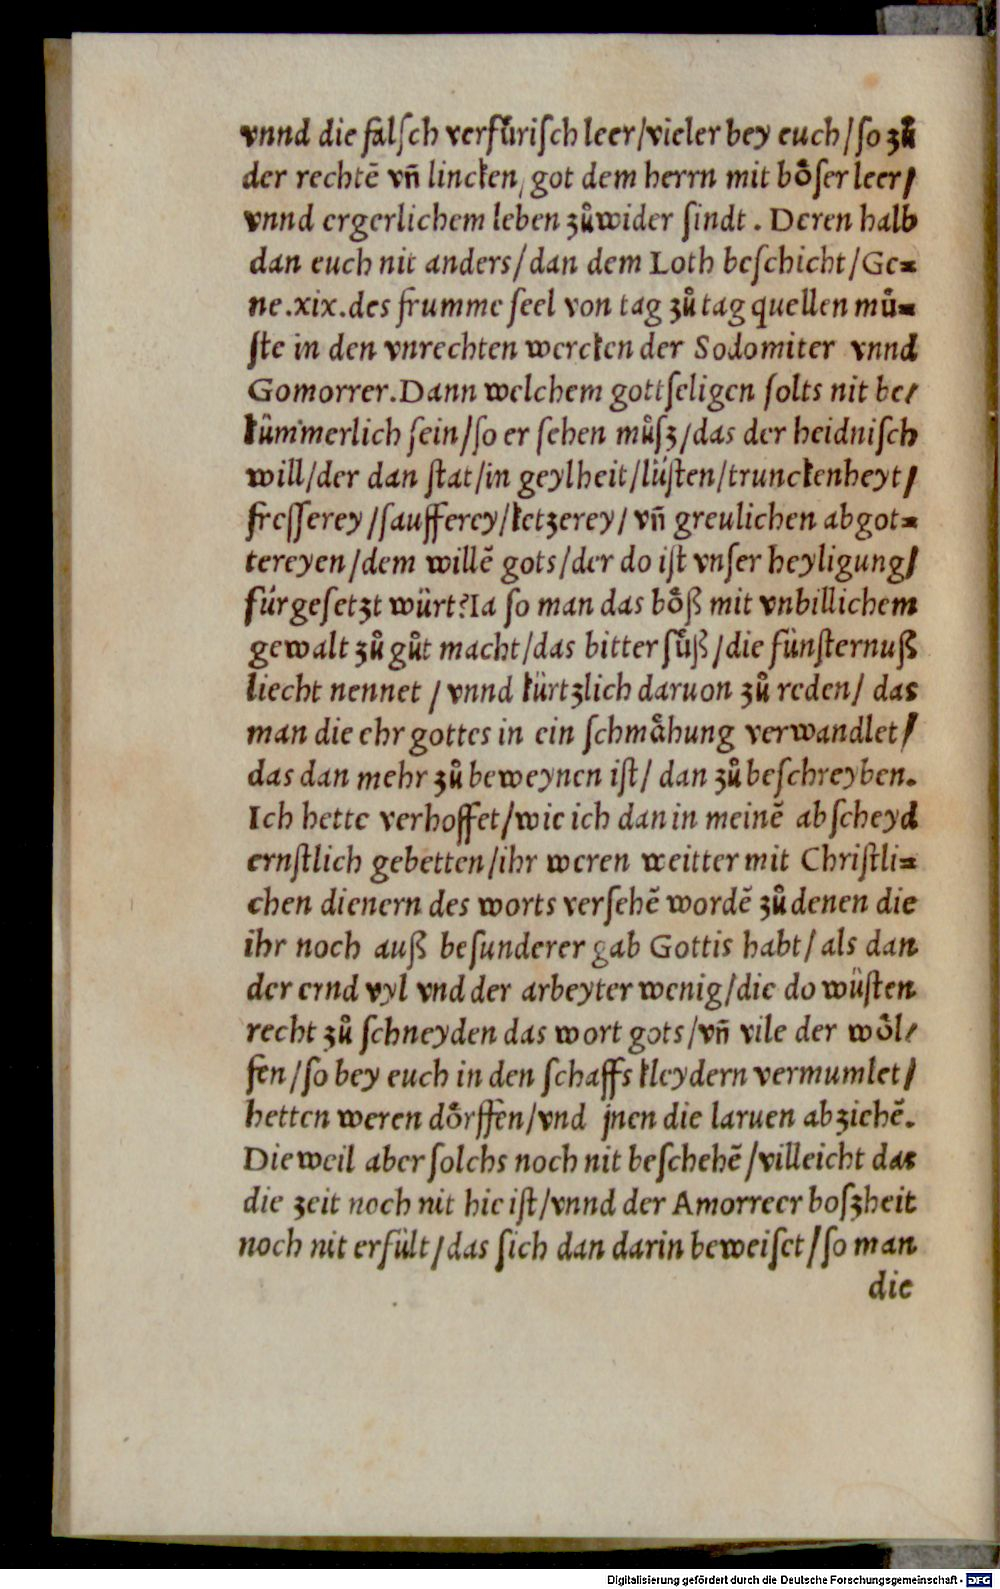 vnnd die falſch verfuͤriſch leer/vieler bey euch/ſo zuͦ
der rechtē vn̄ lincken, got dem herrn mit boͤſer leer/
vnnd ergerlichem leben zuͦwider ſindt. Deren halb
dan euch nit anders/dan dem Loth beſchicht/Ge⸗
ne.xix.des frumme ſeel von tag zuͦ tag quellen muͦ⸗
ſte in den vnrechten wercken der Sodomiter vnnd
Gomorrer. Dann welchem gottſeligen ſolts nit be⸗
kümmerlich ſein/ſo er ſehen muͦſz/das der heidniſch
will/der dan ſtat/in geylheit/lüſten/trunckenheyt/
freſſerey/ſaufferey/ketzerey/vn̄ greulichen abgot⸗
tereyen/dem willē gots/der do iſt vnſer heyligung/
fürgeſetzt würt? Ia ſo man das boͤß mit vnbillichem
gewalt zuͦ guͦt macht/das bitter ſuͤß/die fünſternuß
liecht nennet/vnnd kürtzlich daruon zuͦ reden/ das
man die ehr gottes in ein ſchmaͤhung verwandlet/
das dan mehr zuͦ beweynen iſt/ dan zuͦ beſchreyben.
Ich hette verhoffet/wie ich dan in meinē abſcheyd
ernſtlich gebetten/ihr weren weitter mit Chriſtli⸗
chen dienern des worts verſehē wordē zuͦ denen die
ihr noch auß beſunderer gab Gottis habt/als dan
der ernd vyl vnd der arbeyter wenig/die do wüſten
recht zuͦ ſchneyden das wort gots/vn̄ vile der woͤl⸗
fen/ſo bey euch in den ſchaffs kleydern vermumlet/
hetten weren doͤrffen/vnd jnen die laruen abziehē.
Dieweil aber ſolchs noch nit beſchehē/villeicht das
die zeit noch nit hie iſt/vnnd der Amorreer boſzheit
noch nit erfült/das ſich dan darin beweiſet/ſo man
die
Digitalisierung gefördert durch die Deutsche Forschungsgemeinschaft - DFG